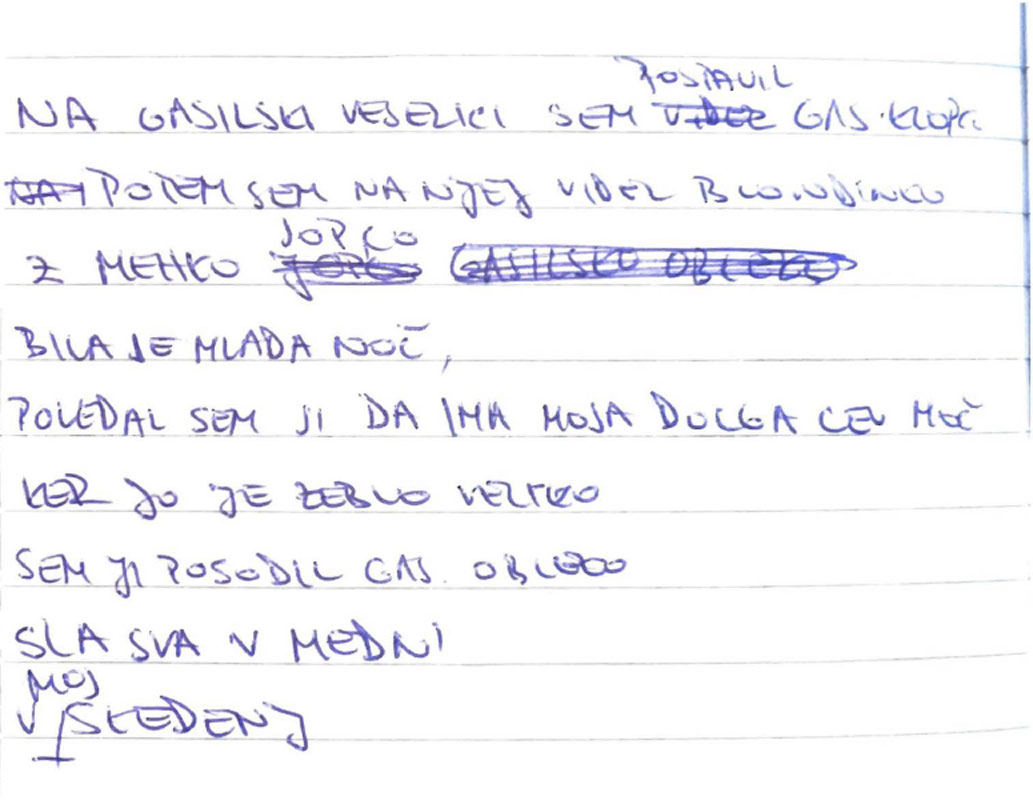 POSTAVIL
NA GASILSKI VESELICI SEM VIDEL GAS. KLOPCI
NA POTEM SEM NA NJEJ VIDEL BLONDINKO
JOPCO
Z MEHKO JOPCO GASILSKO OBLEKO
BILA JE MLADA NOČ,
POVEDAL SEM JI DA IMA MOJA DOLGA CEV MOČ
KER JO JE ZEBLO VELIKO
SEM JI POSODIL GAS. OBLEKO
SLA SVA V MEDNI
MOJ
V SKEDENJ